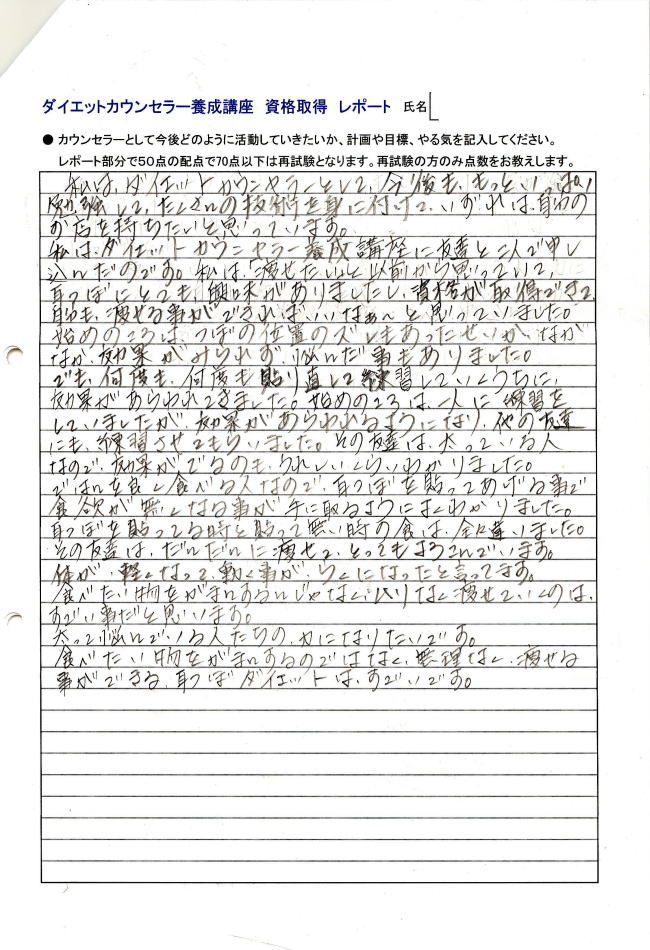 ダイエットカウンセラー養成講座 資格取得 レポート 氏名
● カウンセラーとして今後どのように活動していきたいか、計画や目標、やる気を記入してください。
レポート部分で50点の配点で70点以下は再試験となります。再試験の方のみ点数をお教えします。
私は、ダイエットカウンセラーとして、今後も、もっといっぱい
勉強して、たくさんの技術を身に付けて、いずれは、自分の
お店を持ちたいと思っています。
私は、ダイエットカウンセラー養成講座に友達と二人で申し
込んだのです。私は、「痩せたい」と以前から思っていて、
耳つぼにとても、興味がありましたし、資格が取得できて、
自分も、痩せる事ができれば、いいなぁ〜と思っていました。
始めのころは、つぼの位置のズレもあったせいか、なか
なか、効果が、みられず、悩んだ事もありました。
でも、何度も、何度も貼り直して練習していくうちに、
効果があらわれてきました。始めのころは、一人に練習を
していましたが、効果があらわれるようになり、他の友達
にも、練習させてもらいました。その友達は、太っている人
なので、効果がでるのも、うれしいくらいわかりました。
ごはんを良く食べる人なので、耳つぼを貼ってあげる事で
食欲が無くなる事が手に取るようによくわかりました。
耳つぼを貼ってる時と貼って無い時の食は、全く違いました。
その友達は、だんだんに痩せて、とってもよろこんでいます。
体が、軽くなって、動く事が、らくになったと言ってます。
食べたい物をがまんするんじゃなく、ムリなく痩せていくのは、
すごい事だと思います。
太って悩んでいる人たちの、力になりたいです。
食べたい物をがまんするのではなく、無理なく、痩せる
事ができる、耳つぼダイエットは、すごいです。